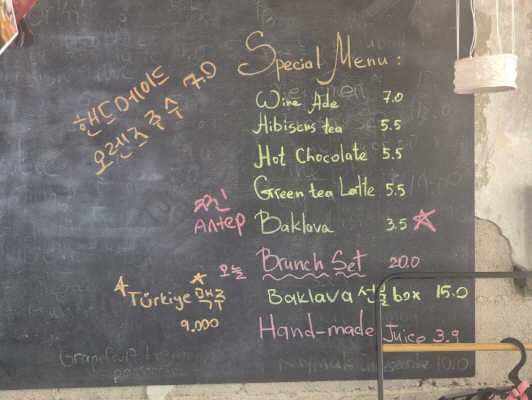 Special Menu :
핸드메이드
오렌지 쥬스 7.0
Wine Ade 7.0
Hibiscus tea 5.5
Hot Chocolate 5.5
Green tea Latte 5.5
Antep
Baklava 3.5
오늘 Brunch Set 20.0
Türkiye 맥주
9.000
Baklava 선물 box 15.0
Hand-made Juice 3.9
Grapefruit